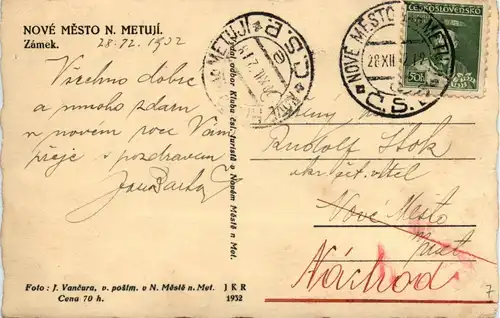 NOVÉ MĚSTO N. METUJÍ.
Zámek.
28.12.1932
Všechno dobré
a mnoho zdaru
v novém roce Vám
přeje s pozdravem
Jan
Foto: J. Vančura, v. poštm. v N. Městě n. Met.
Cena 70 h.
J K R
1932
odbor Klubu čsl. turistů v Novém Městě n. Met.
NOVÉ MĚSTO N. METUJÍ
Č.S.R.
ČESKOSLOVENSKO
50h
NOVÉ MĚSTO N. METUJÍ
28.XII.32
Č.S.R.
Rudolf Stok
Nové Město
Náchod
7